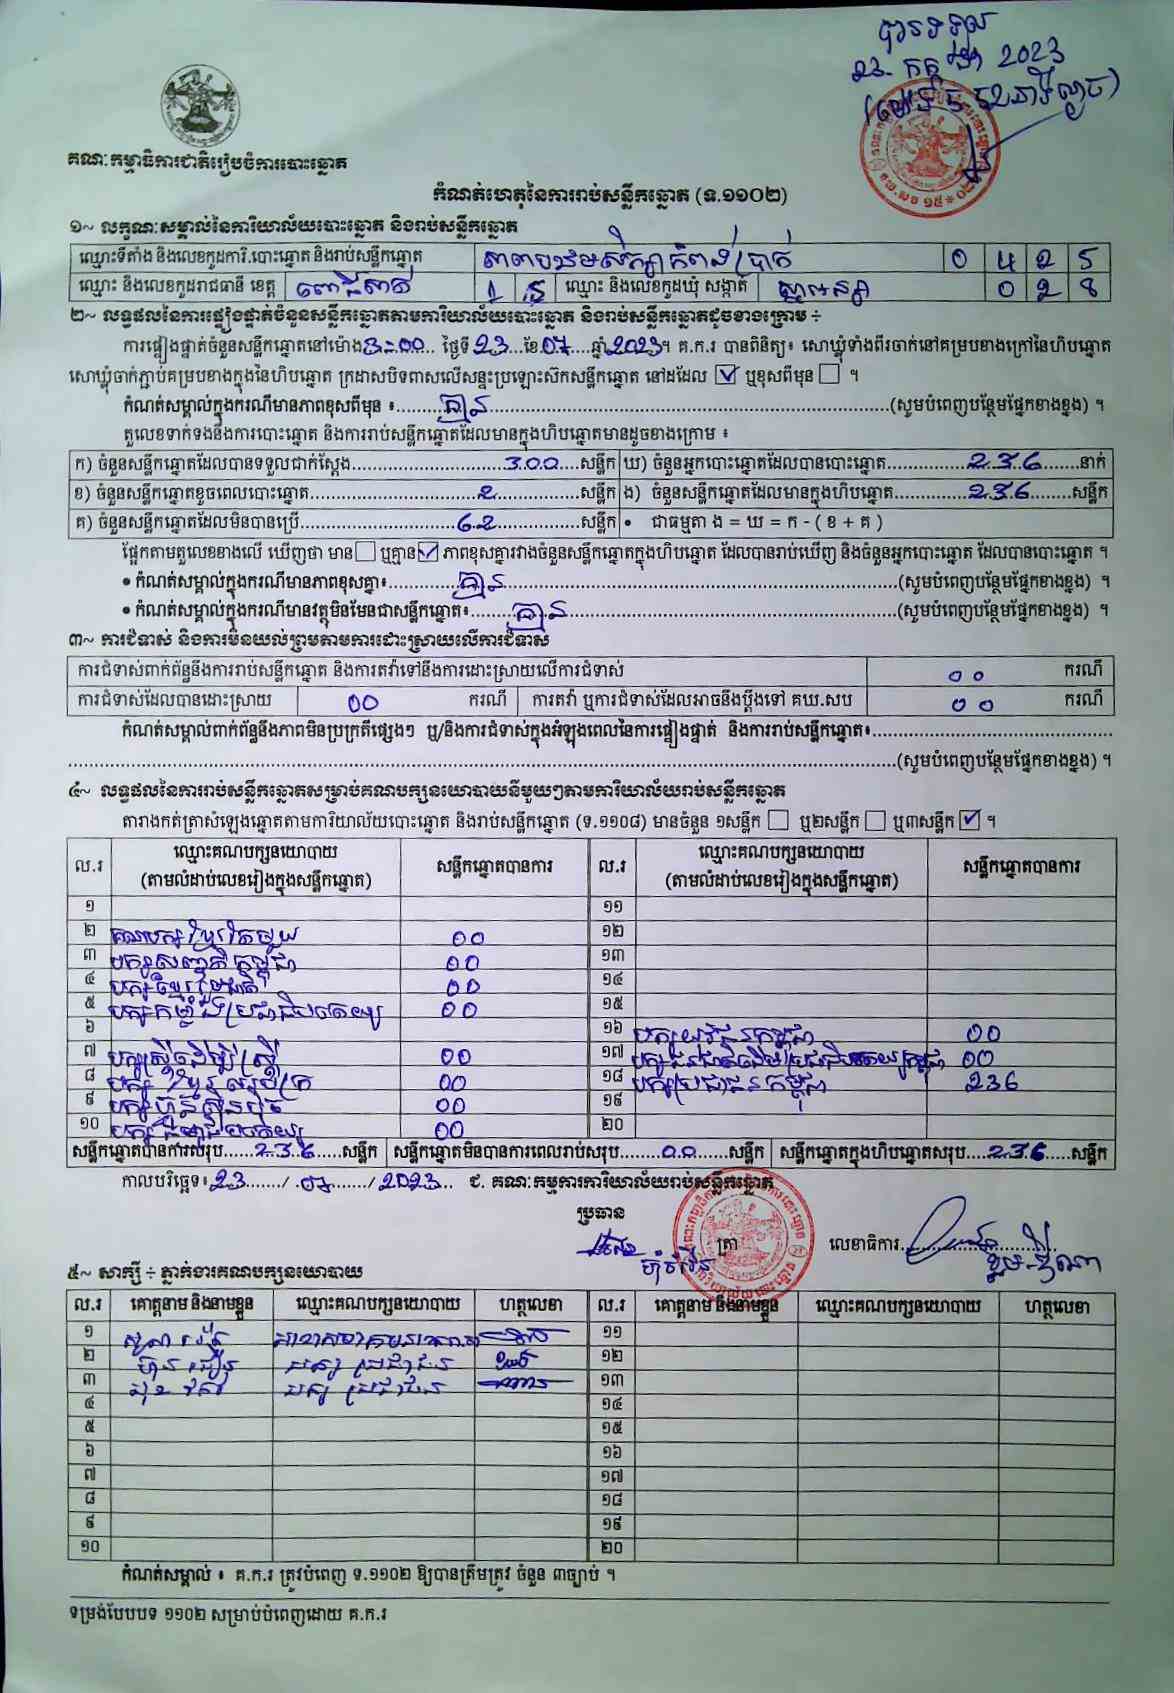 បានទទួល
២៣. កក្កដា 2023
គណៈកម្មាធិការជាតិរៀបចំការបោះឆ្នោត
កំណត់ហេតុនៃការរាប់សន្លឹកឆ្នោត (ទ.១១០២)
១~ លក្ខណៈសម្គាល់នៃការិយាល័យបោះឆ្នោត និងរាប់សន្លឹកឆ្នោត
ឈ្មោះទីតាំង និងលេខកូដការិ.បោះឆ្នោត និងរាប់សន្លឹកឆ្នោត សាលាបឋមសិក្សាកំពង់ប្រាក់ 0 4 2 5
ឈ្មោះ និងលេខកូដរាជធានី ខេត្ត ពោធិ៍សាត់ 1 5 ឈ្មោះ និងលេខកូដឃុំ សង្កាត់ 0 2 8
២~ លទ្ធផលនៃការផ្ទៀងផ្ទាត់ចំនួនសន្លឹកឆ្នោតតាមការិយាល័យបោះឆ្នោត និងរាប់សន្លឹកឆ្នោតដូចខាងក្រោម ÷
ការផ្ទៀងផ្ទាត់ចំនួនសន្លឹកឆ្នោតនៅម៉ោង 3-00 ថ្ងៃទី 23 ខែ 07 ឆ្នាំ 2023។ គ.ក.រ បានពិនិត្យ៖ សោឃ្លុំទាំងពីរចាក់នៅគម្របខាងក្រៅនៃហិបឆ្នោត
សោឃ្លុំចាក់ភ្ជាប់គម្របខាងក្នុងនៃហិបឆ្នោត ក្រដាសបិទពាសលើសន្ទះប្រឡោះស៊កសន្លឹកឆ្នោត នៅដដែល ☑ ឬខុសពីមុន ☐ ។
កំណត់សម្គាល់ក្នុងករណីមានភាពខុសពីមុន ៖ គ្មាន (សូមបំពេញបន្ថែមផ្នែកខាងខ្នង) ។
តួលេខទាក់ទងនឹងការបោះឆ្នោត និងការរាប់សន្លឹកឆ្នោតដែលមានក្នុងហិបឆ្នោតមានដូចខាងក្រោម ៖
ក) ចំនួនសន្លឹកឆ្នោតដែលបានទទួលជាក់ស្តែង 300 សន្លឹក ឃ) ចំនួនអ្នកបោះឆ្នោតដែលបានបោះឆ្នោត 236 នាក់
ខ) ចំនួនសន្លឹកឆ្នោតខូចពេលបោះឆ្នោត 2 សន្លឹក ង) ចំនួនសន្លឹកឆ្នោតដែលមានក្នុងហិបឆ្នោត 236 សន្លឹក
គ) ចំនួនសន្លឹកឆ្នោតដែលមិនបានប្រើ 62 សន្លឹក • ជាធម្មតា ង = ឃ = ក - ( ខ + គ )
ផ្អែកតាមតួលេខខាងលើ ឃើញថា មាន ☐ ឬគ្មាន ☑ ភាពខុសគ្នារវាងចំនួនសន្លឹកឆ្នោតក្នុងហិបឆ្នោត ដែលបានរាប់ឃើញ និងចំនួនអ្នកបោះឆ្នោត ដែលបានបោះឆ្នោត ។
• កំណត់សម្គាល់ក្នុងករណីមានភាពខុសគ្នា៖ គ្មាន (សូមបំពេញបន្ថែមផ្នែកខាងខ្នង) ។
• កំណត់សម្គាល់ក្នុងករណីមានវត្ថុមិនមែនជាសន្លឹកឆ្នោត៖ គ្មាន (សូមបំពេញបន្ថែមផ្នែកខាងខ្នង) ។
៣~ ការជំទាស់ និងការមិនយល់ព្រមតាមការដោះស្រាយលើការជំទាស់
ការជំទាស់ពាក់ព័ន្ធនឹងការរាប់សន្លឹកឆ្នោត និងការតវ៉ាទៅនឹងការដោះស្រាយលើការជំទាស់ 00 ករណី
ការជំទាស់ដែលបានដោះស្រាយ 00 ករណី ការតវ៉ា ឬការជំទាស់ដែលអាចនឹងប្តឹងទៅ គឃ.សប 00 ករណី
កំណត់សម្គាល់ពាក់ព័ន្ធនឹងភាពមិនប្រក្រតីផ្សេងៗ ឬ/និងការជំទាស់ក្នុងអំឡុងពេលនៃការផ្ទៀងផ្ទាត់ និងការរាប់សន្លឹកឆ្នោត៖
(សូមបំពេញបន្ថែមផ្នែកខាងខ្នង) ។
៤~ លទ្ធផលនៃការរាប់សន្លឹកឆ្នោតសម្រាប់គណបក្សនយោបាយនីមួយៗតាមការិយាល័យរាប់សន្លឹកឆ្នោត
តារាងកត់ត្រាសំឡេងឆ្នោតតាមការិយាល័យបោះឆ្នោត និងរាប់សន្លឹកឆ្នោត (ទ.១១០៨) មានចំនួន ១សន្លឹក ☐ ឬ២សន្លឹក ☐ ឬ៣សន្លឹក ☑ ។
ល.រ ឈ្មោះគណបក្សនយោបាយ សន្លឹកឆ្នោតបានការ ល.រ ឈ្មោះគណបក្សនយោបាយ សន្លឹកឆ្នោតបានការ
(តាមលំដាប់លេខរៀងក្នុងសន្លឹកឆ្នោត) (តាមលំដាប់លេខរៀងក្នុងសន្លឹកឆ្នោត)
១ ១១
២ គណបក្សខ្មែរតែមួយ 00 ១២
៣ បក្សសញ្ជាតិកម្ពុជា 00 ១៣
៤ បក្សខ្មែររួបរួមជាតិ 00 ១៤
៥ បក្សកម្លាំងប្រជាធិបតេយ្យ 00 ១៥
៦ ១៦ បក្សយុវជនកម្ពុជា 00
៧ បក្សស្ត្រីដើម្បីស្ត្រី 00 ១៧ បក្សជនជាតិដើមប្រជាធិបតេយ្យកម្ពុជា 00
៨ 00 ១៨ បក្សប្រជាជនកម្ពុជា 236
៩ បក្សហ៊្វុនស៊ិនប៉ិច 00 ១៩
១០ 00 ២០
សន្លឹកឆ្នោតបានការសរុប 236 សន្លឹក សន្លឹកឆ្នោតមិនបានការពេលរាប់សរុប 00 សន្លឹក សន្លឹកឆ្នោតក្នុងហិបឆ្នោតសរុប 236 សន្លឹក
កាលបរិច្ឆេទ៖ 23 / 07 / 2023 ជ. គណៈកម្មការការិយាល័យរាប់សន្លឹកឆ្នោត
ប្រធាន
ត្រា លេខាធិការ
៥~ សាក្សី ÷ ភ្នាក់ងារគណបក្សនយោបាយ
ល.រ គោត្តនាម និងនាមខ្លួន ឈ្មោះគណបក្សនយោបាយ ហត្ថលេខា ល.រ គោត្តនាម និងនាមខ្លួន ឈ្មោះគណបក្សនយោបាយ ហត្ថលេខា
១ ១១
២ បក្ស ប្រជាជន ១២
៣ បក្ស ប្រជាជន ១៣
៤ ១៤
៥ ១៥
៦ ១៦
៧ ១៧
៨ ១៨
៩ ១៩
១០ ២០
កំណត់សម្គាល់ ៖ គ.ក.រ ត្រូវបំពេញ ទ.១១០២ ឱ្យបានត្រឹមត្រូវ ចំនួន ៣ច្បាប់ ។
ទម្រង់បែបបទ ១១០២ សម្រាប់បំពេញដោយ គ.ក.រ